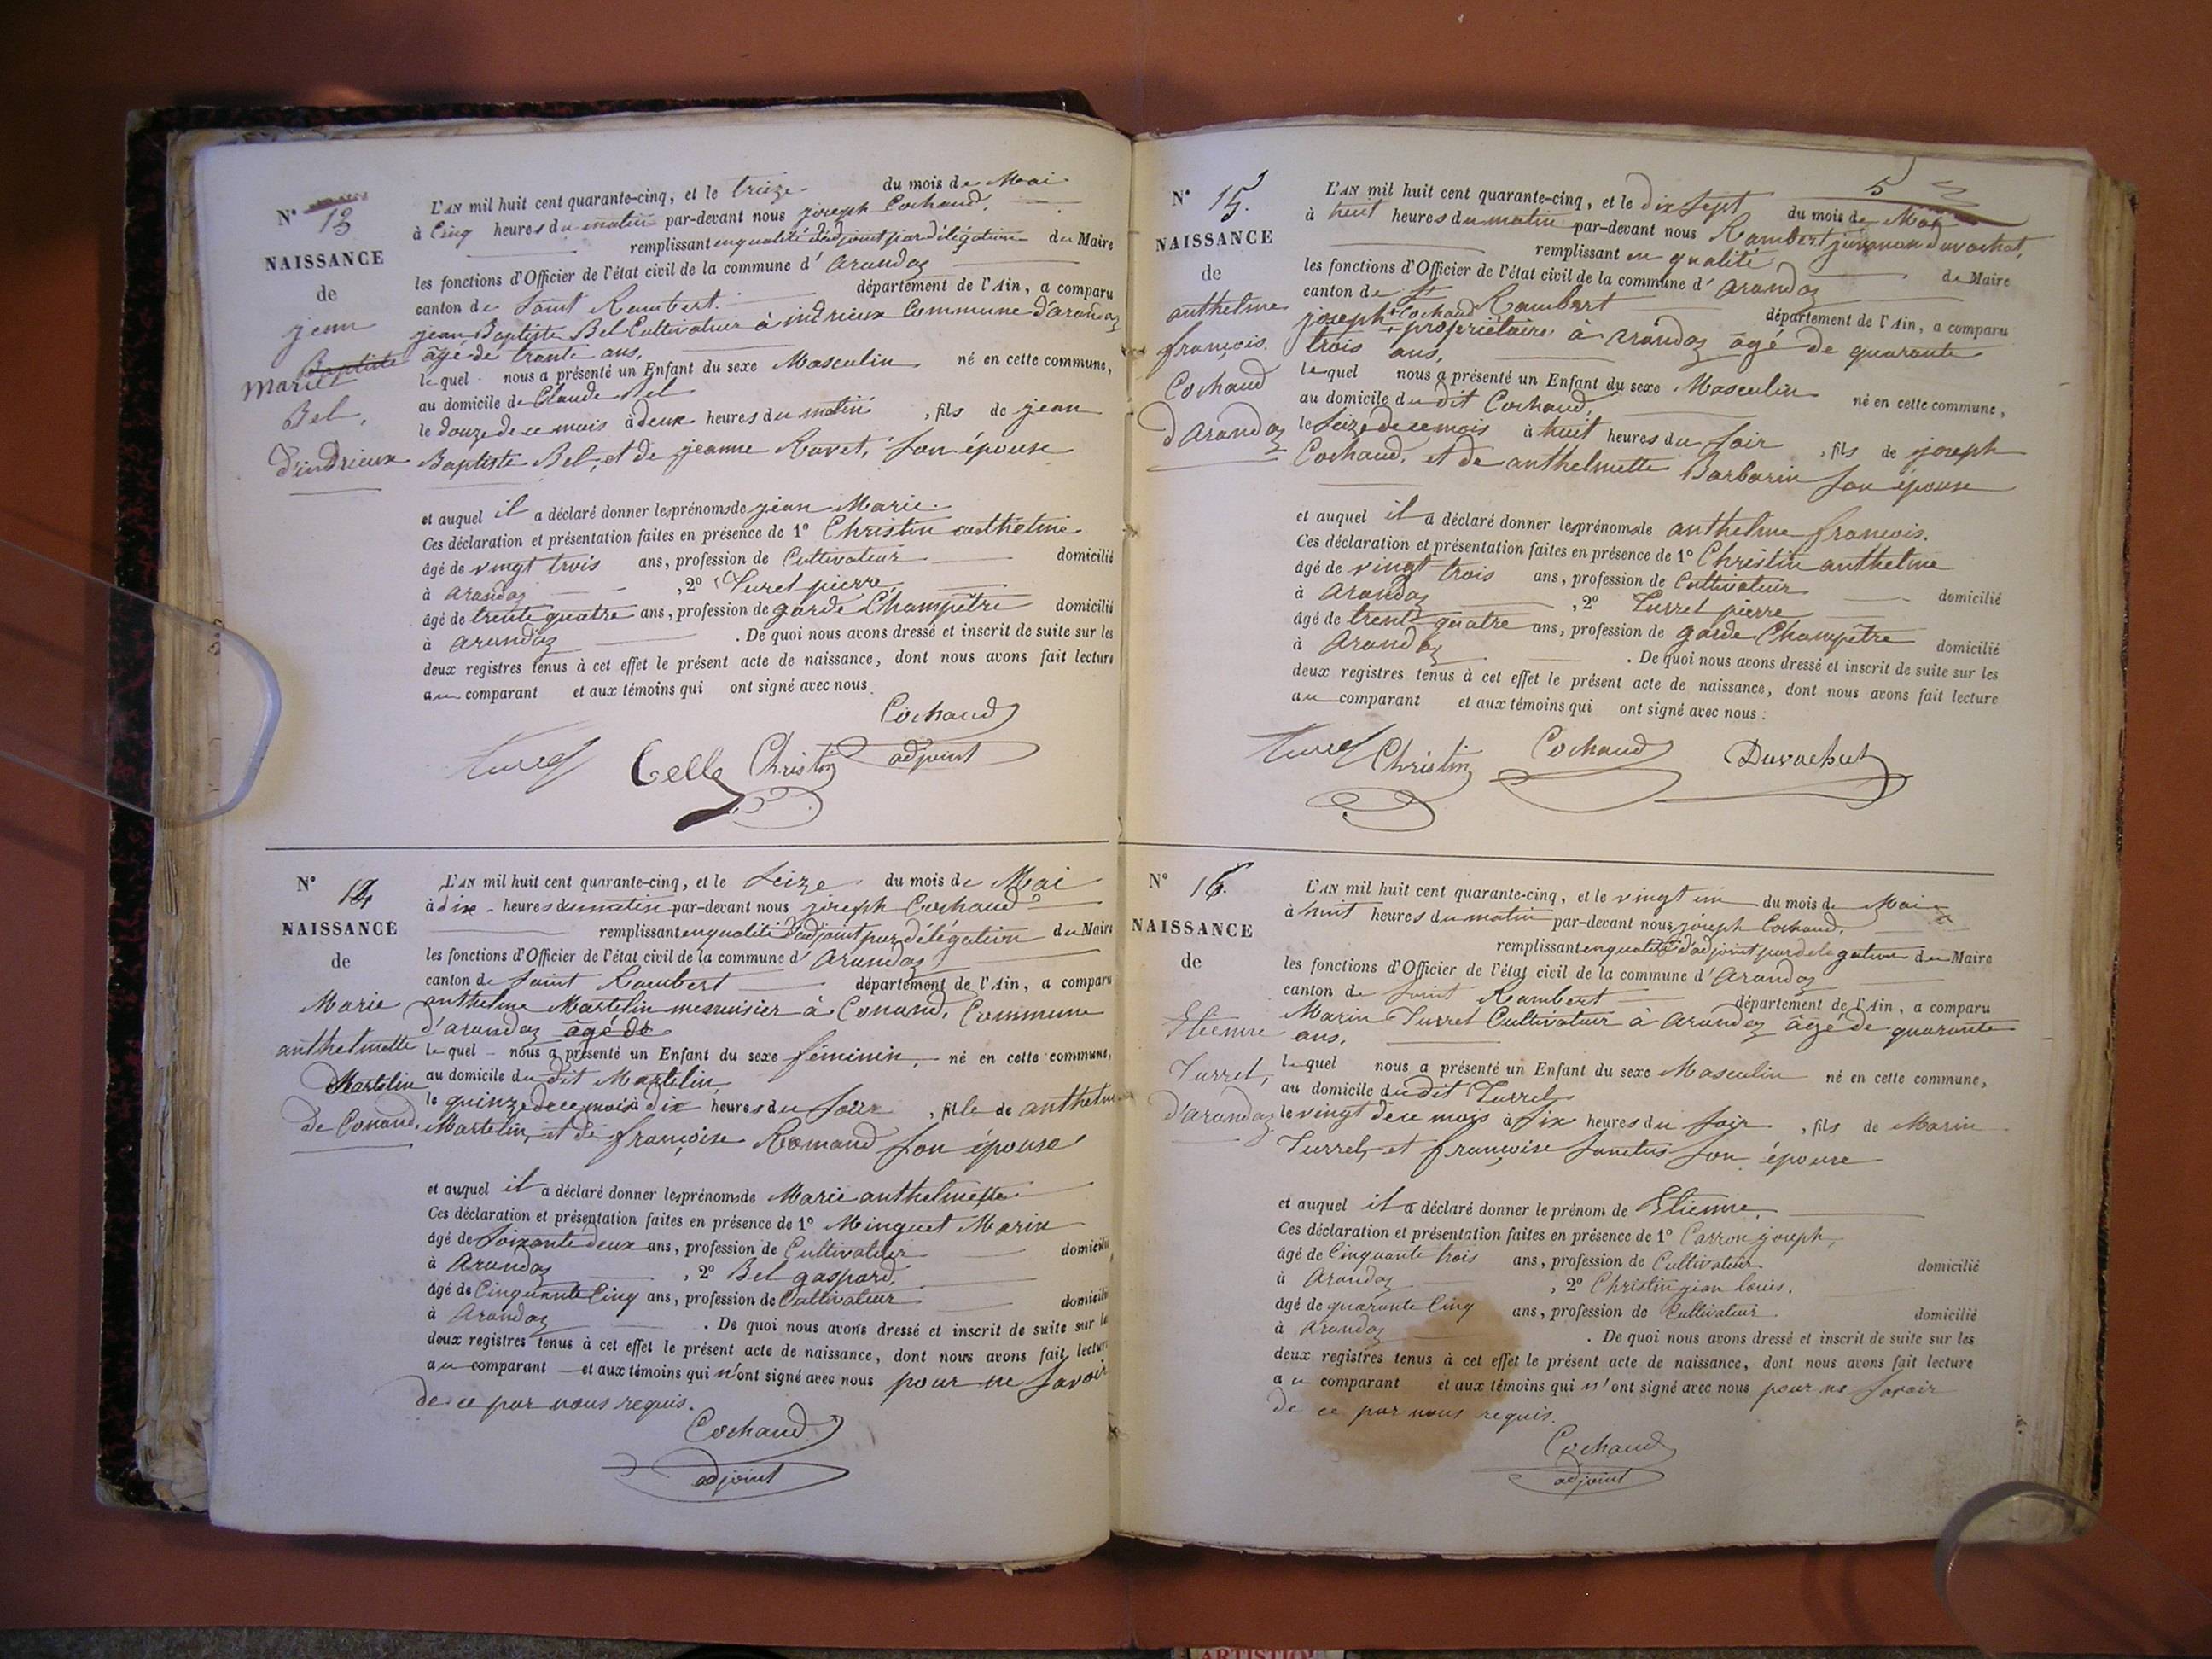 N° 13
NAISSANCE
de
jean
Baptiste
Marie
Bel,
d'indrieux
L'AN mil huit cent quarante-cinq, et le treize du mois de Mai
à Cinq heures du matin par-devant nous joseph Cochaud,
remplissant en qualité d'adjoint par délégation du Maire
les fonctions d'Officier de l'état civil de la commune d'arandaz
canton de Saint Rambert. département de l'Ain, a comparu
jean Baptiste Bel Cultivateur à indrieux Commune d'arandaz
âgé de trante ans,
lequel nous a présenté un Enfant du sexe Masculin né en cette commune,
au domicile de Claude Bel
le douze de ce mois à deux heures du matin, fils de jean
Baptiste Bel, et de jeanne Ravet, son épouse
et auquel il a déclaré donner les prénoms de jean Marie.
Ces déclaration et présentation faites en présence de 1° Christin anthelme
âgé de vingt trois ans, profession de Cultivateur domicilié
à arandaz, 2° Turel pierre
âgé de trente quatre ans, profession de garde Champêtre domicilié
à arandaz. De quoi nous avons dressé et inscrit de suite sur les
deux registres tenus à cet effet le présent acte de naissance, dont nous avons fait lecture
au comparant et aux témoins qui ont signé avec nous.
Cochaud
adjoint
Turrel Belle Christin
N° 14
NAISSANCE
de
Marie
anthelmette
Martelin
de Conand.
L'AN mil huit cent quarante-cinq, et le Seize du mois de Mai
à dix heures du matin par-devant nous joseph Cochaud
remplissant en qualité d'adjoint par délégation du Maire
les fonctions d'Officier de l'état civil de la commune d'Arandaz
canton de Saint Rambert département de l'Ain, a comparu
anthelme Martelin menuisier à Conand, Commune
d'arandaz âgé de
lequel nous a présenté un Enfant du sexe féminin, né en cette commune,
au domicile du dit Martelin
le quinze de ce mois à dix heures du soir, fille de anthelme
Martelin, et de françoise Romand son épouse
et auquel il a déclaré donner les prénoms de Marie anthelmette
Ces déclaration et présentation faites en présence de 1° Minguet Marin
âgé de Soixante deux ans, profession de Cultivateur domicilié
à Arandaz, 2° Bel gaspard,
âgé de Cinquante Cinq ans, profession de Cultivateur domicilié
à Arandaz. De quoi nous avons dressé et inscrit de suite sur les
deux registres tenus à cet effet le présent acte de naissance, dont nous avons fait lecture
au comparant et aux témoins qui n'ont signé avec nous pour ne savoir
de ce par nous requis.
Cochaud
adjoint
5
N° 15.
NAISSANCE
de
anthelme
françois.
Cochaud
d'Arandaz
L'AN mil huit cent quarante-cinq, et le dix sept du mois de Mai
à huit heures du matin par-devant nous Rambert Duvachat,
remplissant en qualité de Maire
les fonctions d'Officier de l'état civil de la commune d'Arandaz
canton de St Rambert département de l'Ain, a comparu
joseph Cochaud propriétaire à Arandaz âgé de quarante
trois ans,
lequel nous a présenté un Enfant du sexe Masculin né en cette commune,
au domicile du dit Cochaud,
le Seize de ce mois à huit heures du soir, fils de joseph
Cochaud, et de anthelmette Barbarin son épouse
et auquel il a déclaré donner les prénoms de anthelme françois.
Ces déclaration et présentation faites en présence de 1° Christin anthelme
âgé de vingt trois ans, profession de Cultivateur domicilié
à Arandaz, 2° Turrel pierre
âgé de trente quatre ans, profession de garde Champêtre domicilié
à Arandaz. De quoi nous avons dressé et inscrit de suite sur les
deux registres tenus à cet effet le présent acte de naissance, dont nous avons fait lecture
au comparant et aux témoins qui ont signé avec nous.
Turrel Christin Cochaud Duvachat
N° 16.
NAISSANCE
de
Etienne
Turrel,
d'arandaz
L'AN mil huit cent quarante-cinq, et le vingt un du mois de Mai
à huit heures du matin par-devant nous joseph Cochaud,
remplissant en qualité d'adjoint par delegation du Maire
les fonctions d'Officier de l'état civil de la commune d'Arandaz
canton de Saint Rambert département de l'Ain, a comparu
Marin Turrel Cultivateur à Arandaz âgé de quarante
ans,
lequel nous a présenté un Enfant du sexe Masculin né en cette commune,
au domicile du dit Turrel
le vingt de ce mois à six heures du soir, fils de Marin
Turrel, et françoise Sanctus son épouse
et auquel il a déclaré donner le prénom de Etienne.
Ces déclaration et présentation faites en présence de 1° Carron joseph,
âgé de Cinquante trois ans, profession de Cultivateur domicilié
à Arandaz, 2° Christin jean louis,
âgé de quarante Cinq ans, profession de Cultivateur domicilié
à Arandaz. De quoi nous avons dressé et inscrit de suite sur les
deux registres tenus à cet effet le présent acte de naissance, dont nous avons fait lecture
au comparant et aux témoins qui n'ont signé avec nous pour ne savoir
de ce par nous requis.
Cochaud
adjoint